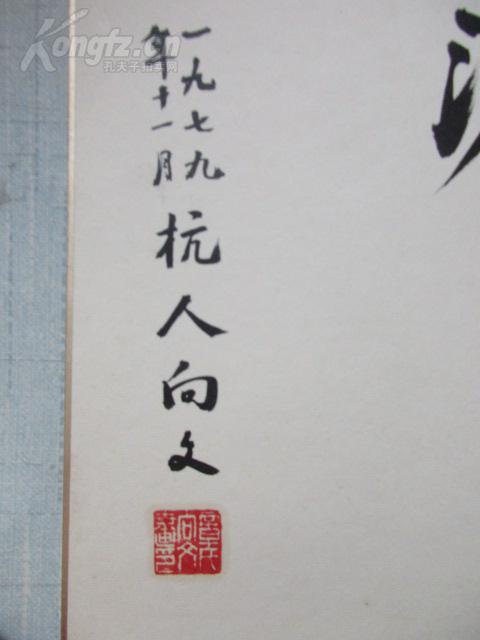 Kongfz.cn
孔夫子拍卖网
一九七九
年十一月
杭人向文